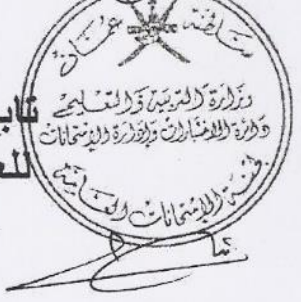 سلطنة عمان
وزارة التربية والتعليم
دائرة الاختبارات وإدارة الامتحانات
لجنة الامتحانات العامة
تاب
للع